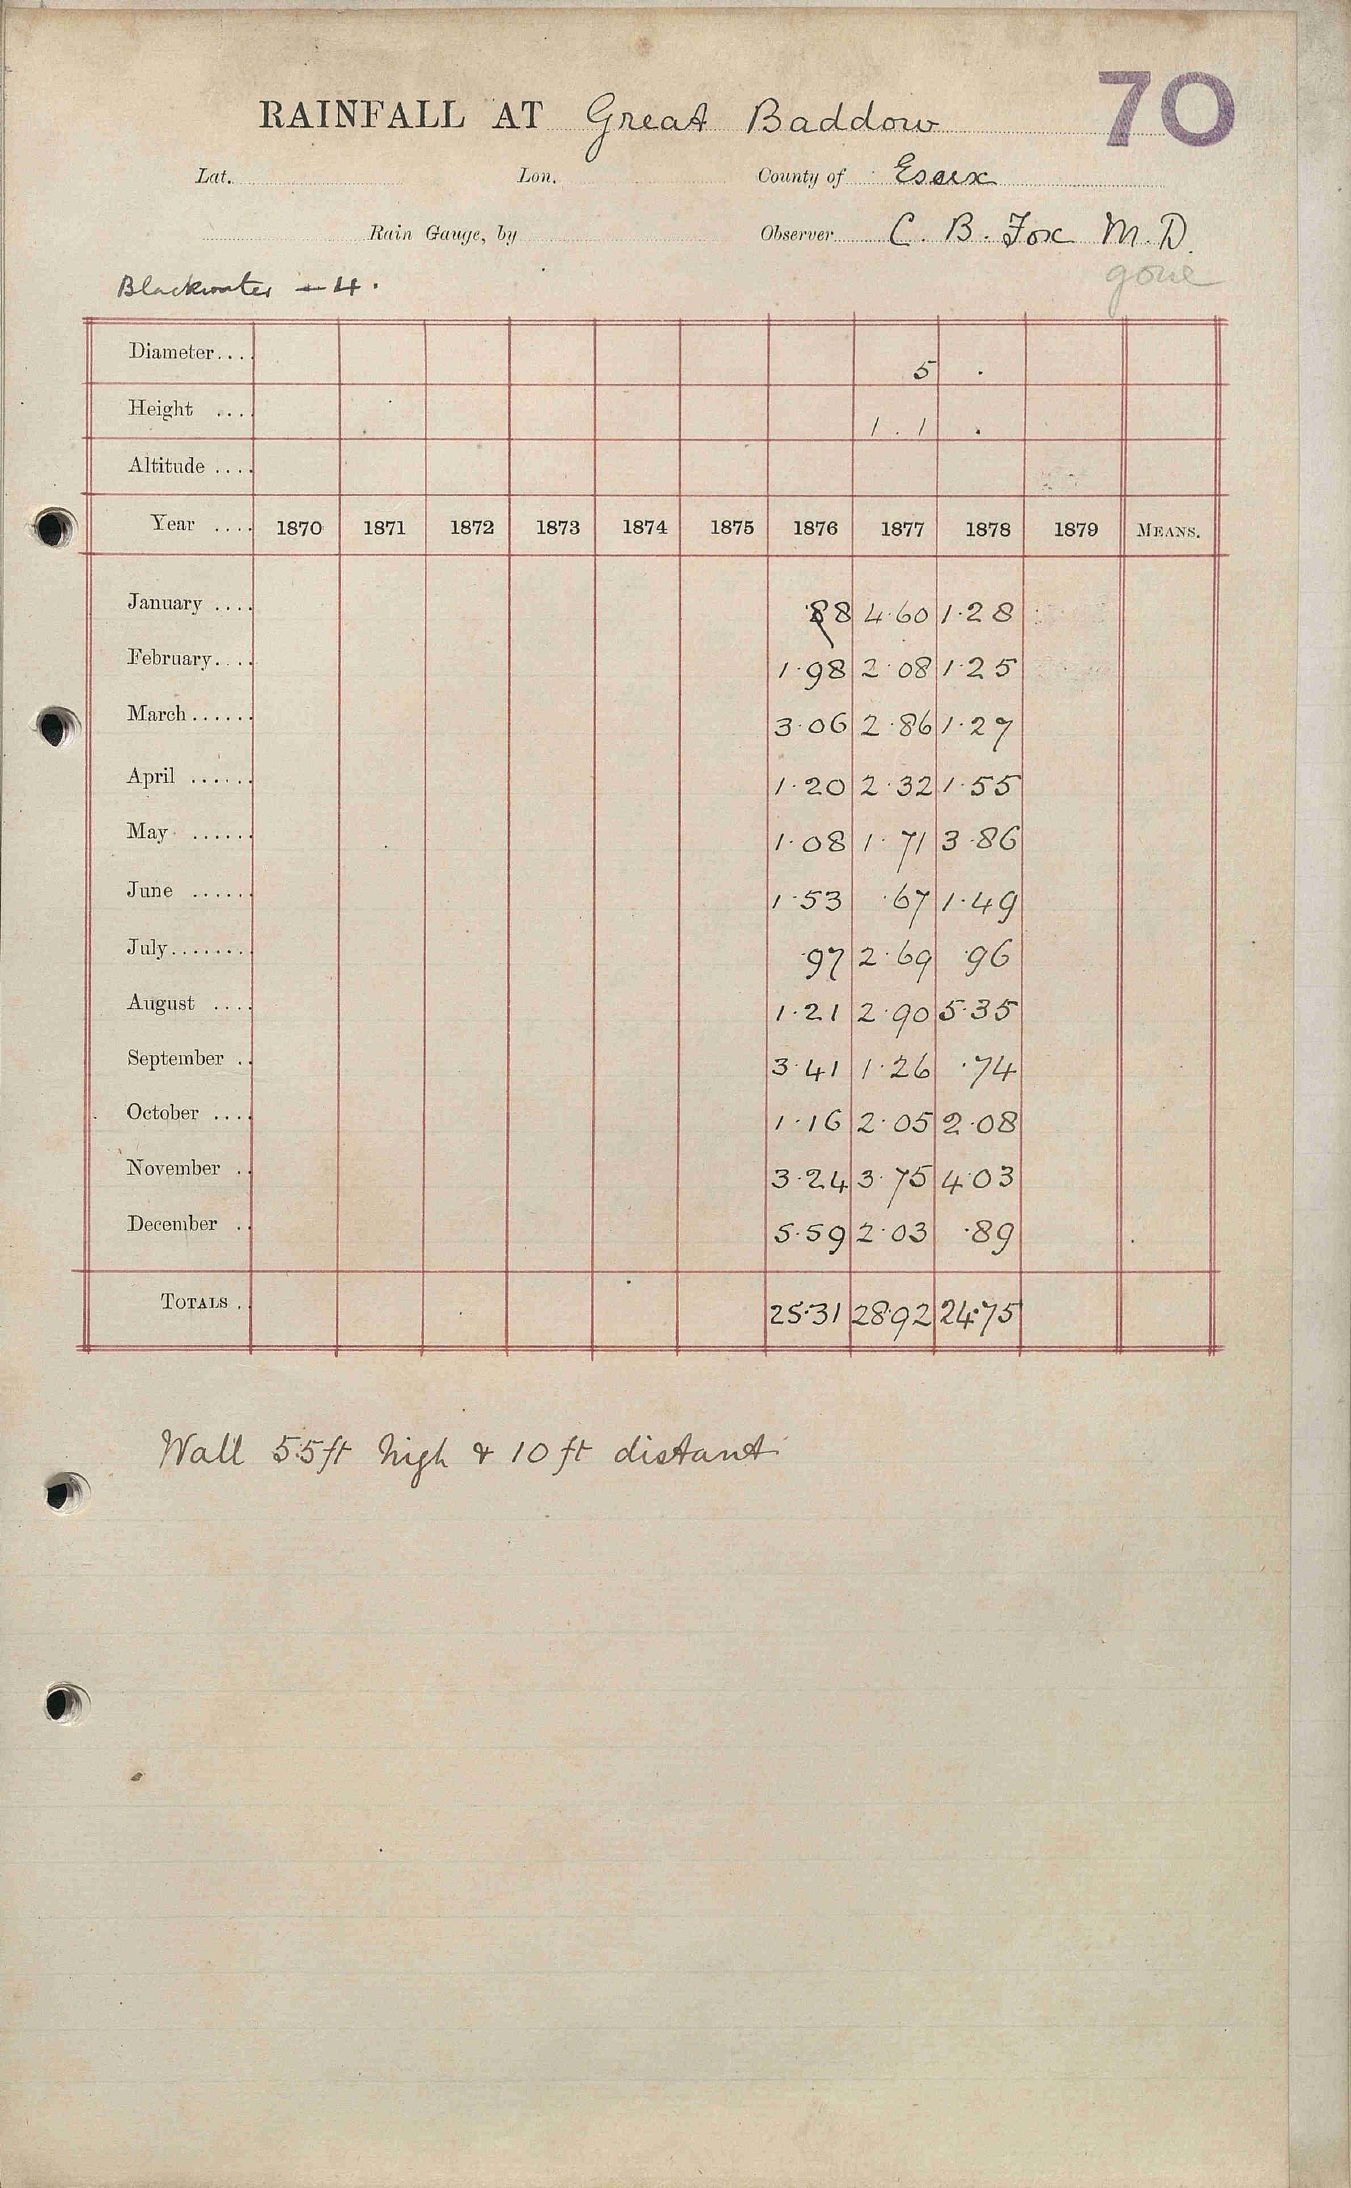 70
RAINFALL AT Great Baddow
Lat. Lon. County of Essex
Rain Gauge, by Observer C. B. Fox M.D.
gone
Blackwater - 4.
Diameter.... 5 .
Height .... 1.1 .
Altitude ....
Year .... 1870 1871 1872 1873 1874 1875 1876 1877 1878 1879 MEANS.
January .... .88 4.60 1.28
February.... 1.98 2.08 1.25
March...... 3.06 2.86 1.27
April ...... 1.20 2.32 1.55
May ...... 1.08 1.71 3.86
June ...... 1.53 .67 1.49
July........ .97 2.69 .96
August .... 1.21 2.90 5.35
September .. 3.41 1.26 .74
October .... 1.16 2.05 2.08
November .. 3.24 3.75 4.03
December .. 5.59 2.03 .89
TOTALS .. 25.31 28.92 24.75
Wall 5.5ft high & 10 ft distant.